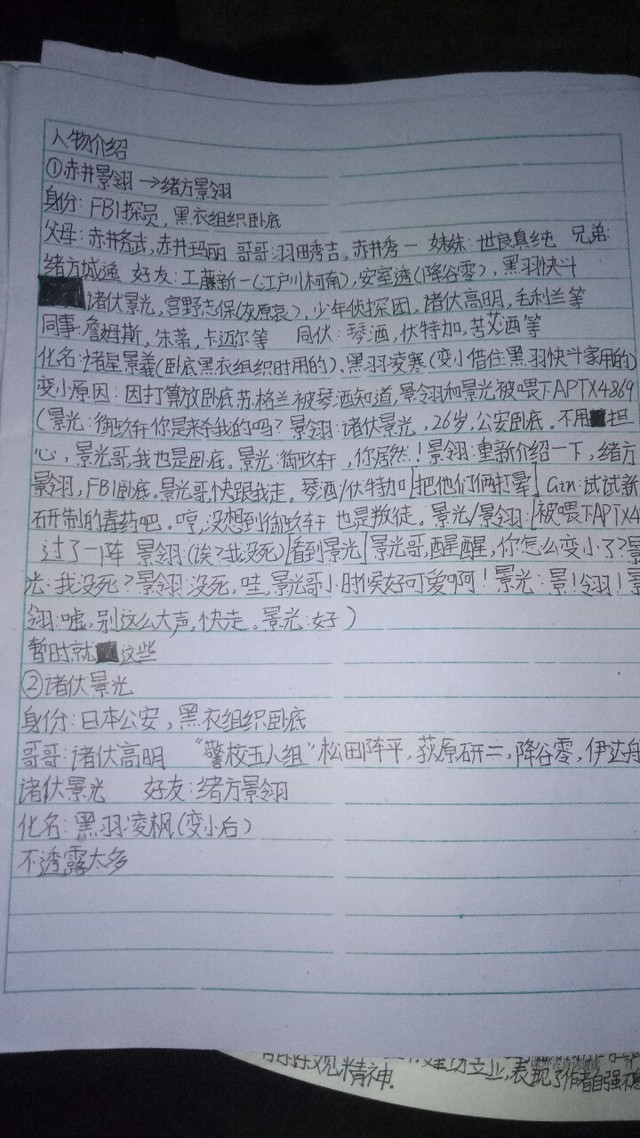 人物介绍
①赤井景翎→绪方景翎
身份：FBI探员，黑衣组织卧底
父母：赤井务武，赤井玛丽 哥哥：羽田秀吉，赤井秀一 妹妹：世良真纯 兄弟：
绪方城逸 好友：工藤新一(江户川柯南)，安室透(降谷零)，黑羽快斗
诸伏景光，宫野志保(灰原哀)，少年侦探团，诸伏高明，毛利兰等
同事：詹姆斯，朱蒂，卡迈尔等 同伙：琴酒，伏特加，苦艾酒等
化名：诸星景羲(卧底黑衣组织时用的)、黑羽凌寒(变小借住黑羽快斗家用的)
变小原因：因打算放卧底苏格兰被琴酒知道，景翎和景光被喂下APTX4869
(景光：御玖轩你是来杀我的吗？景翎：诸伏景光，26岁，公安卧底。不用担
心，景光哥，我也是卧底。景光：御玖轩，你居然！景翎：重新介绍一下，绪方
景翎，FBI卧底。景光哥快跟我走。琴酒/伏特加[把他们俩打晕] Gin：试试新
研制的毒药吧。哼，没想到御玖轩也是叛徒。景光/景翎：[被喂下APTX4
过了一阵 景翎：(诶？我没死)[看到景光]景光哥，醒醒，你怎么变小了？景
光：我没死？景翎：没死，哇，景光哥小时侯好可爱啊！景光：景！翎！景
翎：嘘，别这么大声，快走。景光：好)
暂时就这些
②诸伏景光
身份：日本公安，黑衣组织卧底
哥哥：诸伏高明 “警校五人组”松田阵平，荻原研二，降谷零，伊达舟
诸伏景光 好友：绪方景翎
化名：黑羽凌枫(变小后)
不透露太多
精神．
表现了作者自强不息